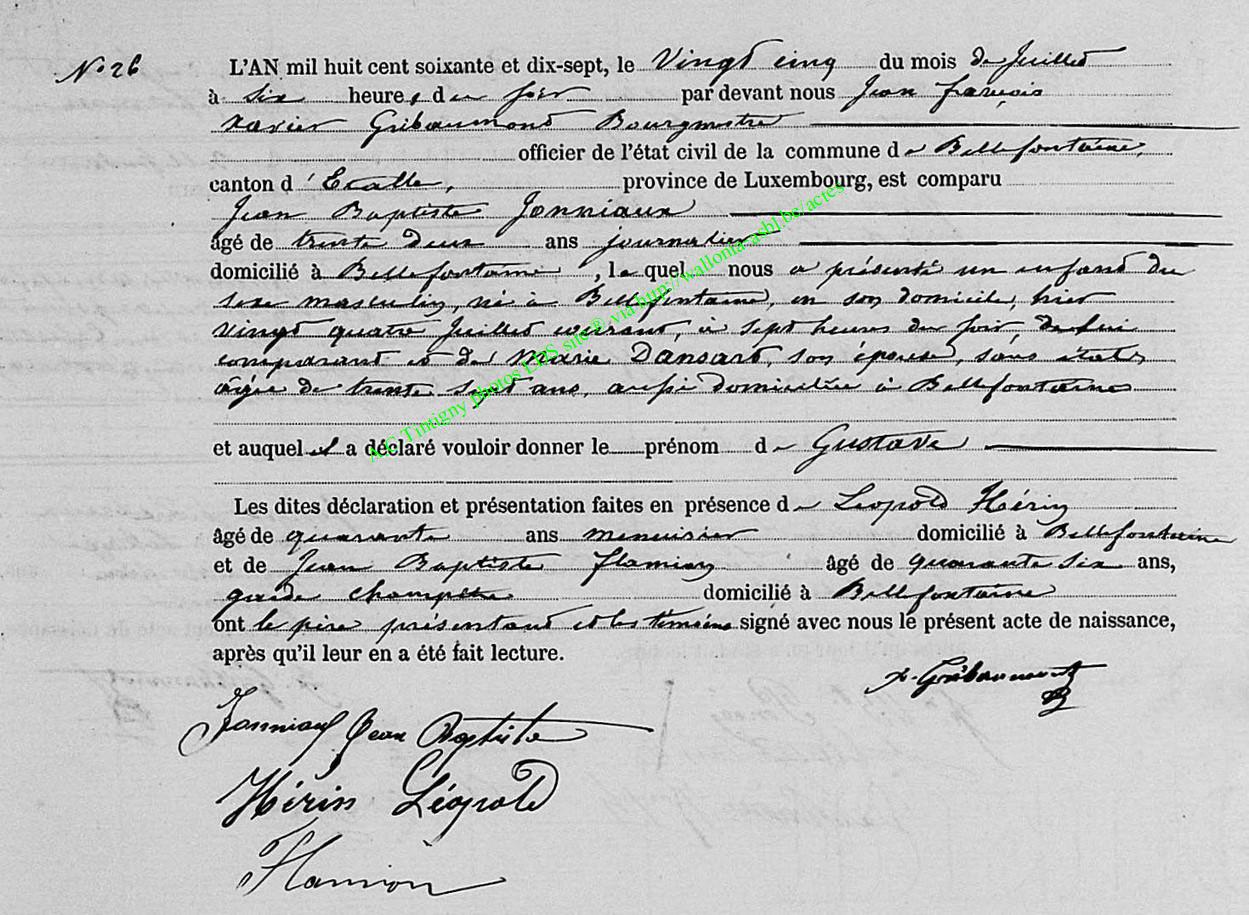 N° 26
L'AN mil huit cent soixante et dix-sept, le Vingt cinq du mois de Juillet
à six heures du soir par devant nous Jean françois
xavier Gribaumont Bourgmestre
officier de l'état civil de la commune de Bellefontaine,
canton d'Etalle, province de Luxembourg, est comparu
Jean Baptiste Jonniaux
âgé de trente deux ans journalier
domicilié à Bellefontaine, le quel nous a présenté un enfant du
sexe masculin, né à Bellefontaine, en son domicile, hier
vingt quatre Juillet courant, à sept heures du soir, de lui
comparant et de Marie Dansart, son épouse, sans état,
âgée de trente sept ans, aussi domiciliée à Bellefontaine
et auquel il a déclaré vouloir donner le prénom de Gustave
Les dites déclaration et présentation faites en présence de Léopold Hérin
âgé de quarante ans menuisier domicilié à Bellefontaine
et de Jean Baptiste Flamion âgé de quarante six ans,
garde champêtre domicilié à Bellefontaine
ont le père présentant et les témoins signé avec nous le présent acte de naissance,
après qu'il leur en a été fait lecture.
x. Gribaumont
Jonniaux Jean Baptiste
Hérin Léopold
Flamion
AC Tintigny photos LDS site© via http://wallonia-asbl.be/actes